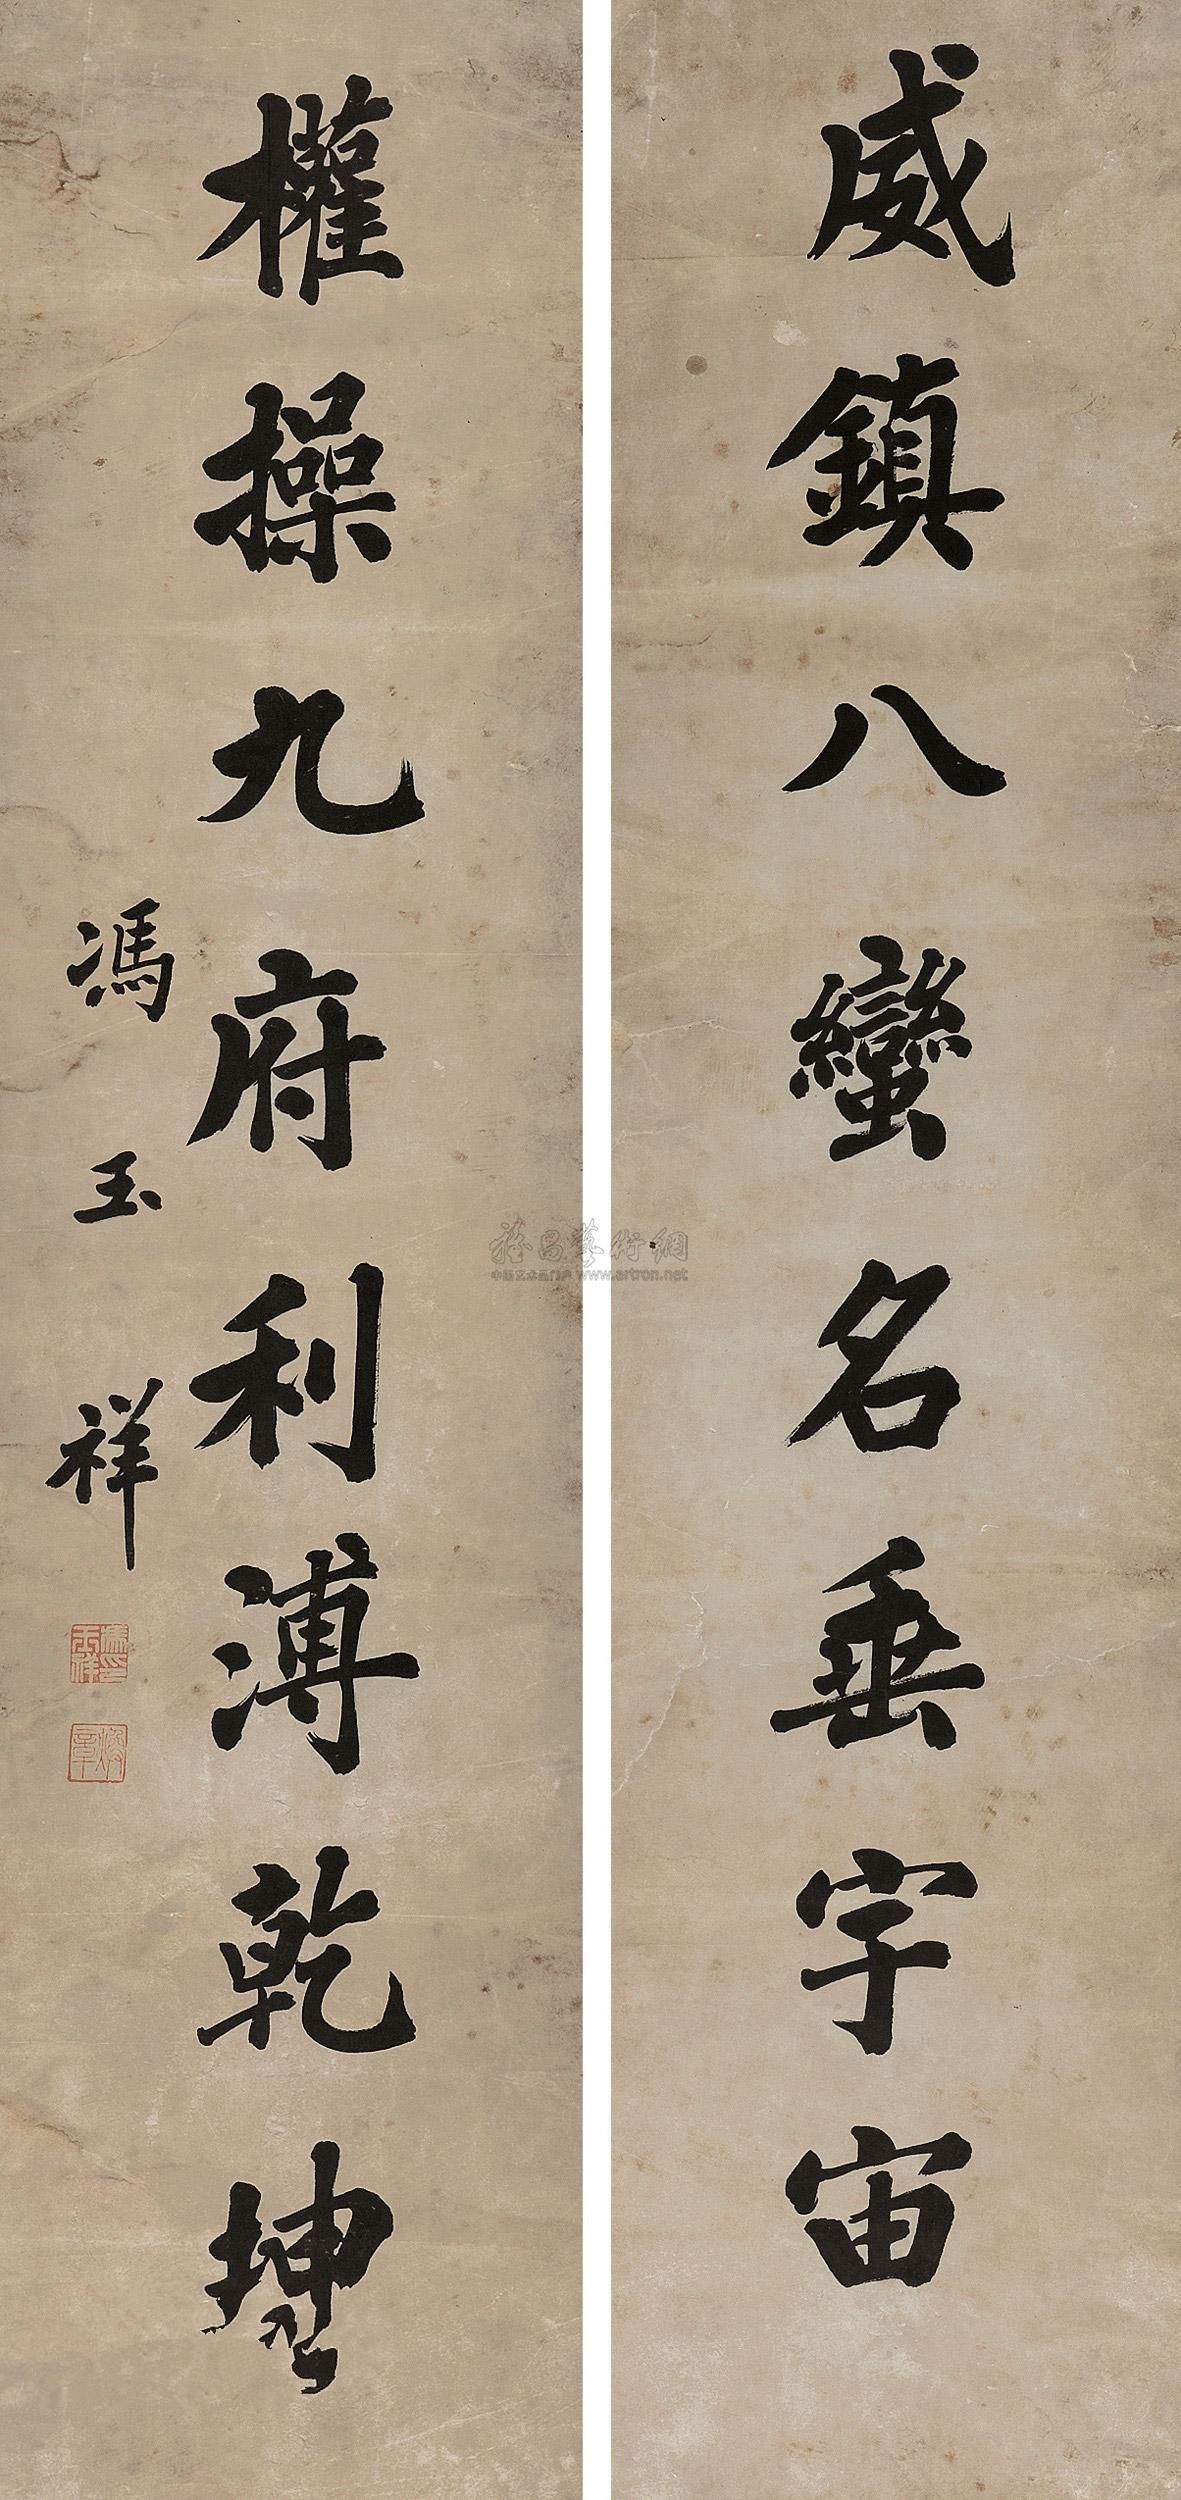 威鎮八蠻名垂宇宙
權操九府利溥乾坤
馮玉祥
馮玉祥印
煥章
雅昌藝術網
中国艺术品门户 www.artron.net